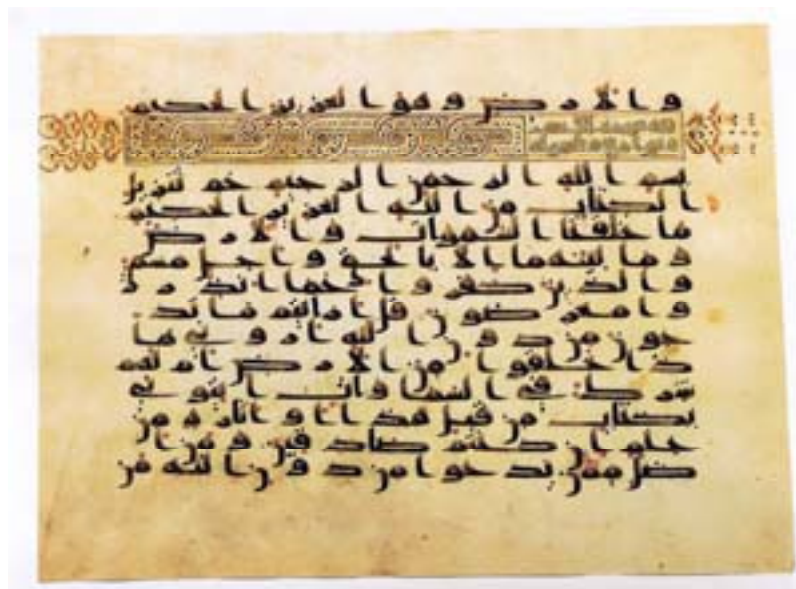 والارض وهو العزيز الحكيم
بسم الله الرحمن الرحيم حم تنزيل
الكتاب من الله العزيز الحكيم
ما خلقنا السموات والارض
وما بينهما الا بالحق واجل مسمى
والذين كفروا عما انذرو
ا معرضون قل ارايتم ما تد
عون من دون الله اروني ما
ذا خلقوا من الارض ام لهم
شرك في السماوات ايتوني
بكتاب من قبل هذا او اثارة من
علم ان كنتم صادقين ومن ا
ضل ممن يدعوا من دون الله من